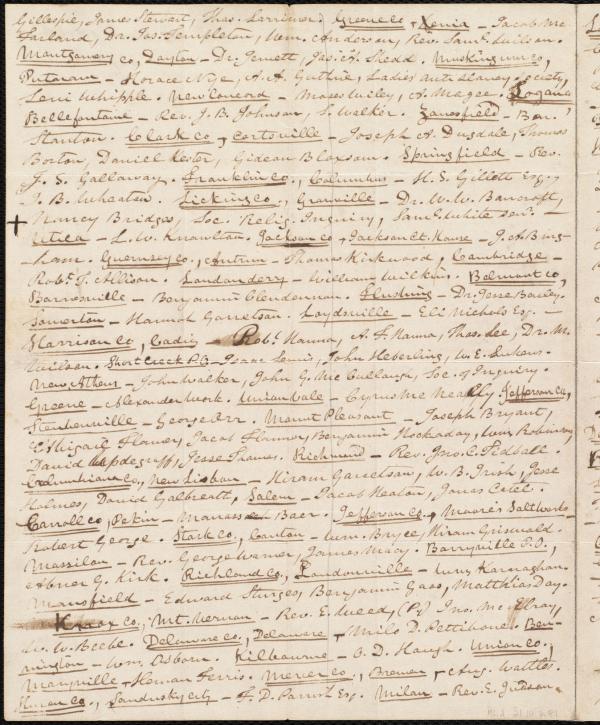 Gillespie, James Stewart, Thos. Larrimer. Greene Co + Xenia – Jacob Mc
Farland, Dr. Jos. Templeton, Wm. Anderson, Rev. Saml. Wilson.
Montgomery co, Dayton – Dr. Jewett, Jas. A. Shedd. Muskingum co,
Putnam – Horace Nye, A. A. Guthrie, Ladies Anti Slavery Society,
Levi Whipple. New Concord – Moses Wiley, A. Magee. Logan
Bellefontaine – Rev. J. B. Johnson, S. Walker. Zanesfield – Ben.
Stanton. Clark co, Cortsville – Joseph A. Dugdale, Thomas
Borton, Daniel Kester, Gideon Bloxsom. Springfield – Rev.
J. S. Galloway. Franklin co., Columbus – H. S. Gillett Esq.,
J. B. Wheaton. Licking co, Granville – Dr. W. W. Bancroft,
Nancy Bridges, Soc. Relig. Inquiry, Saml. White Senr. –
Utica – L. W. Knowlton. Jackson co + Jackson Ct. House – J. A. Bing-
ham. Guernsey co., Antrim – Thomas Kirkwood, Cambridge –
Robt. T. Allison. Londonderry – William Wilkin. Belmont co,
Barnesville – Benjamin Clendennan. Flushing – Dr. Jesse Bailey.
Somerton – Hannah Garretson. Loydsville – Eli Nichols Esq. –
Harrison co, Cadiz – Robt. Hanna, A. F. Hanna, Thos. Lee, Dr. M.
Wilson. Short Creek P.O – Isaac Lewis, John Heberling, W. E. Lukens.
New Athens – John Walker, John G. Mc Cullough, Soc. of Inquiry.
Greene – Alexander Work. Unionvale – Cyrus Mc Neally. Jefferson Co,
Steubenville – George Orr. Mount Pleasant – Joseph Bryant,
Abigail Flanner, Jacob Flanner, Benjamin Hockaday, Wm. Robinson,
David Updegraff, Jesse Thomas. Richmond – Rev. Jno. C. Tidball.
Columbiana co, New Lisbon – Hiram Garretson, W. B. Irish, Jesse
Holmes, David Galbreath, Salem – Jacob Heaton, Jonas Catel.
Carroll co, Pekin – Manasseh Baer. Jefferson Co., Moore's Salt Works
Robert George. Stark co, Canton – Wm. Bryce, Hiram Griswold.
Massilon – Rev. George Warner, James Macy. Barryville P.O.,
Abner G. Kirk. Richland co, Loudonville – Wm. Karnaghan.
Mansfield – Edward Sturges, Benjamin Gass, Matthias Day.
Knox co., Mt. Vernon – Rev. E. Weed, Jno. Mc Elroy,
W. W. Beebe. Delaware co, Delaware – Milo D. Pettibone. Ben-
nington – Wm. Osborn. Kilbourne – O. D. Hough. Union co.,
Marysville – Homan Ferris. Mercer co., Bremen – Aug. Wattles.
Huron co., Sandusky city – F. D. Parish Esq. Milan – Rev. E. Judson.